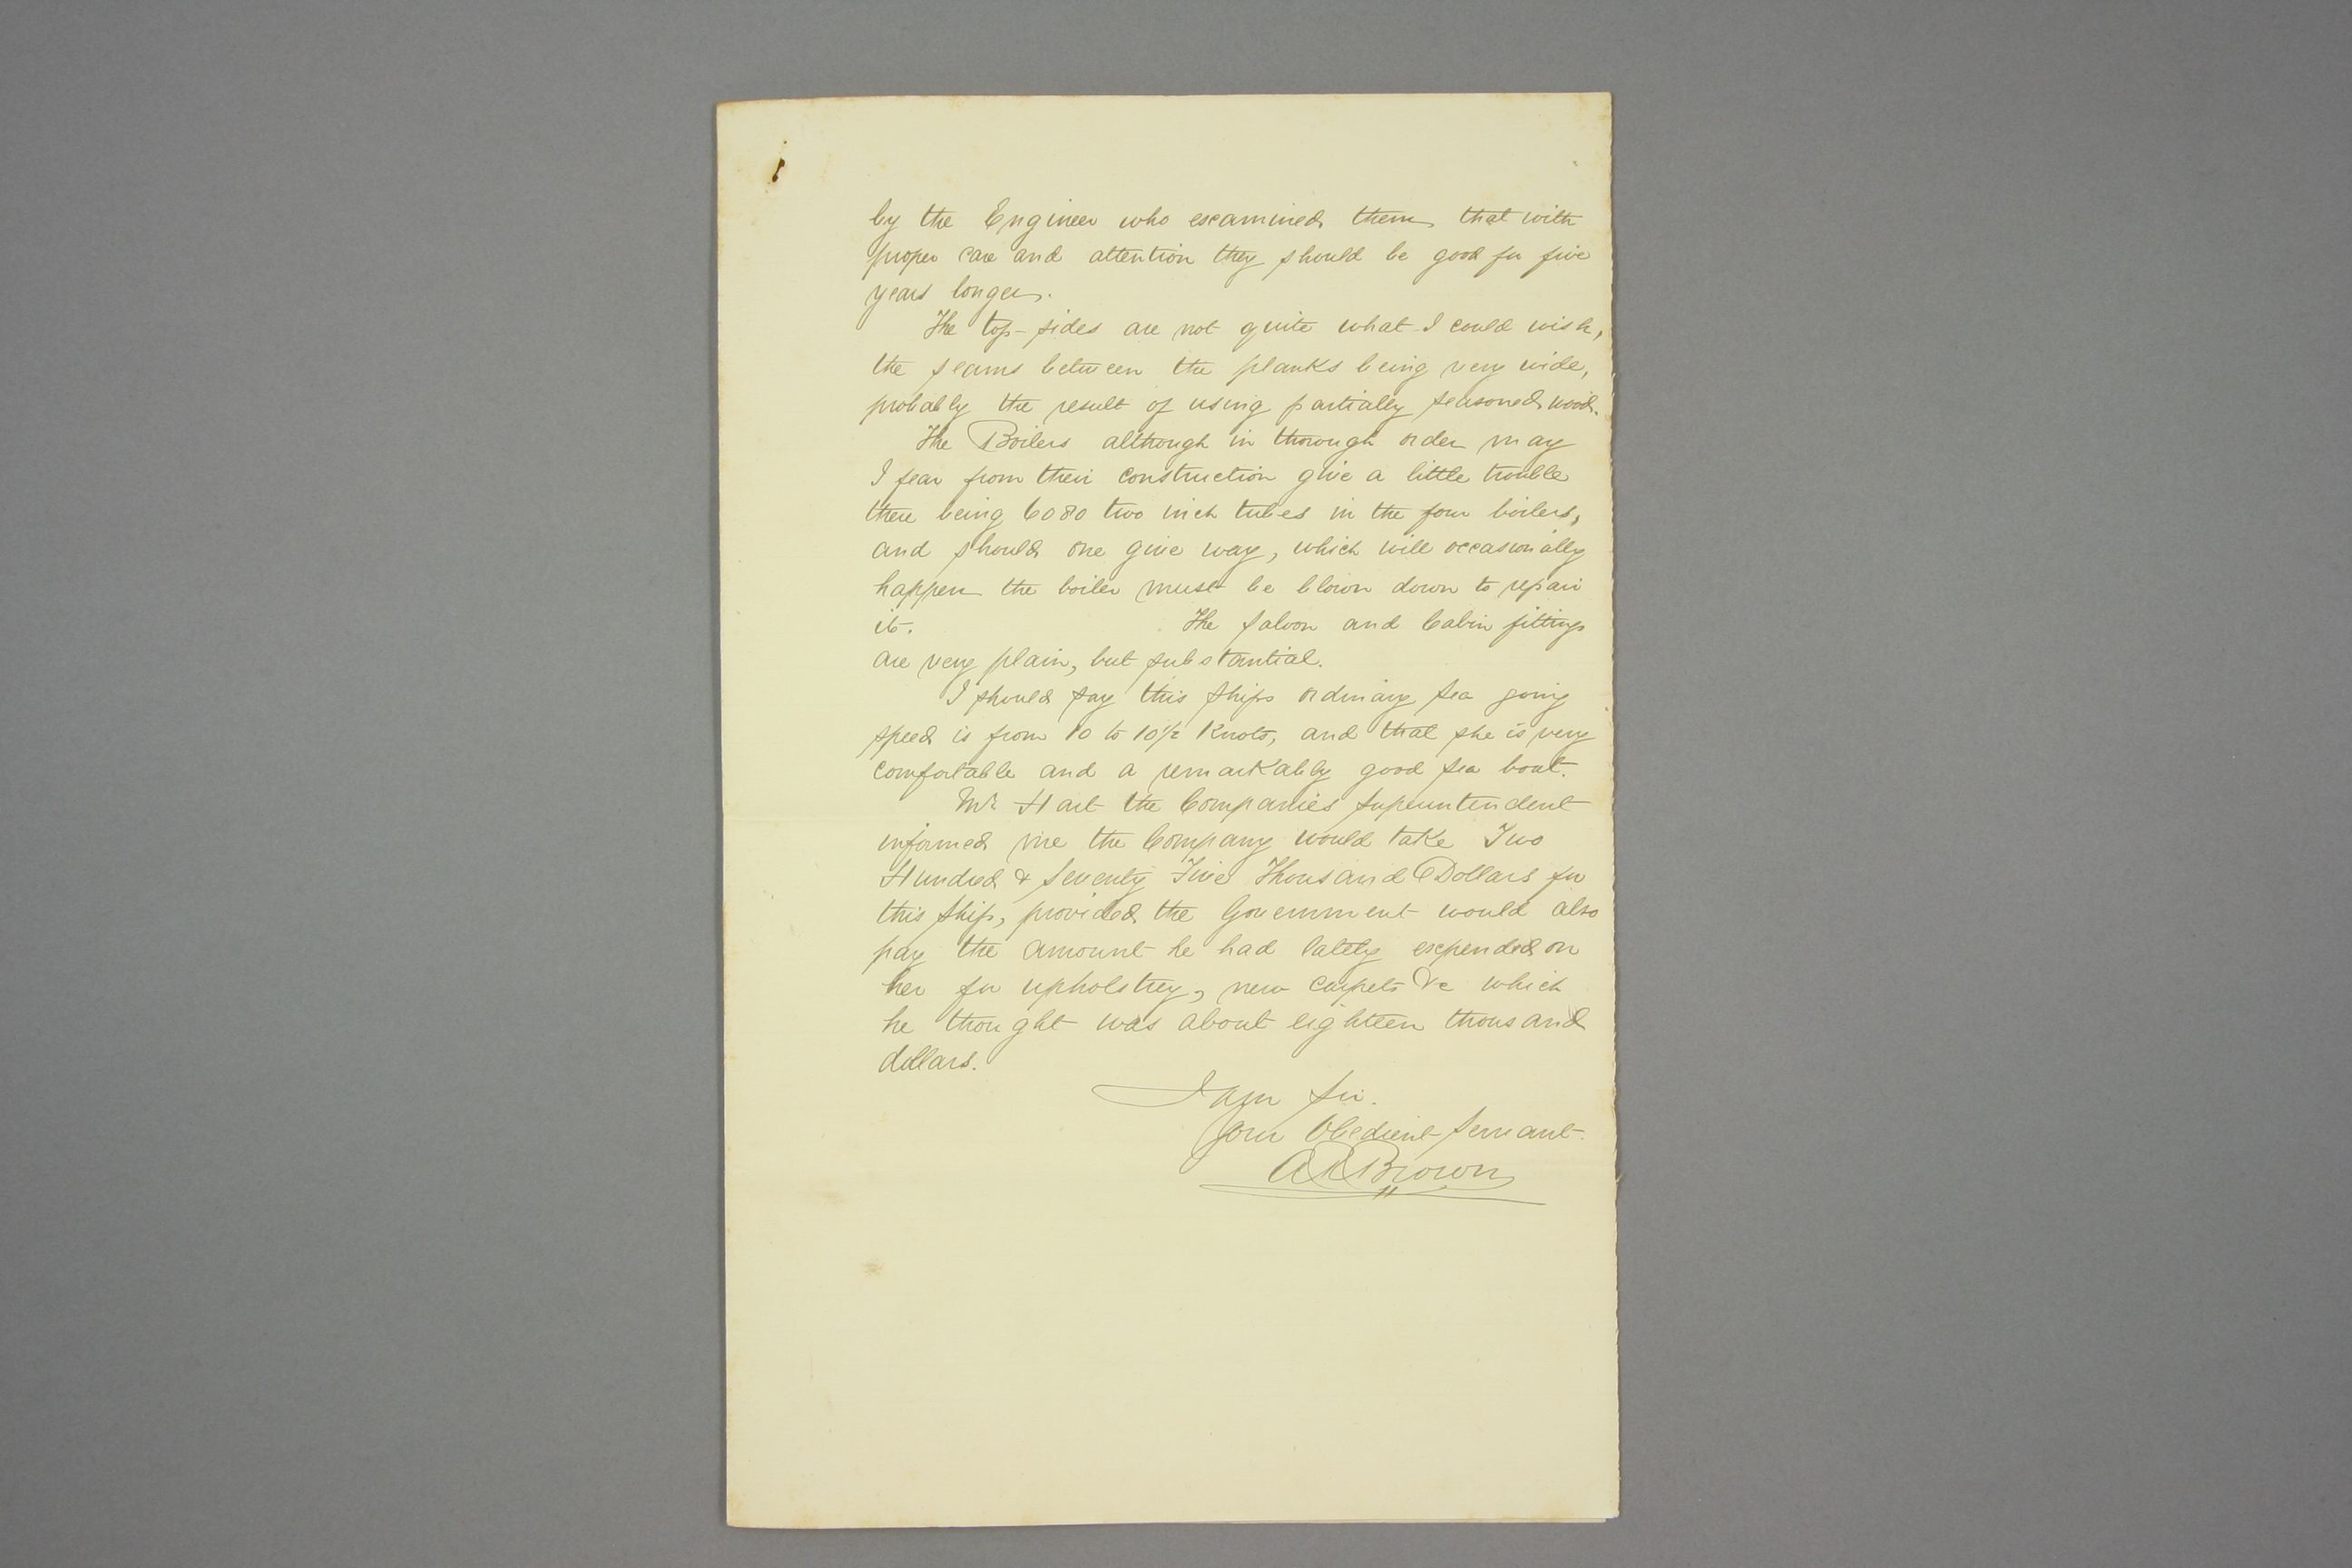 by the Engineer who examined them that with
proper care and attention they should be good for five
years longer.
The top-sides are not quite what I could wish,
the seams between the planks being very wide,
probably the result of using partially seasoned wood.
The Boilers although in thorough order may
I fear from their construction give a little trouble
there being 6080 two inch tubes in the four boilers,
and should one give way, which will occasionally
happen the boiler must be blown down to repair
it. The Saloon and Cabin fittings
are very plain, but substantial.
I should say this ships ordinary sea going
speed is from 10 to 10½ Knots, and that she is very
comfortable and a remarkably good sea boat.
Mr Hart the Companies Superintendent
informed me the Company would take Two
Hundred & Seventy Five Thousand Dollars for
this ship, provided the Government would also
pay the amount he had lately expended on
her for upholstrey, new carpets &c which
he thought was about eighteen thousand
dollars.
I am Sir.
Your Obedient Servant.
A R Brown